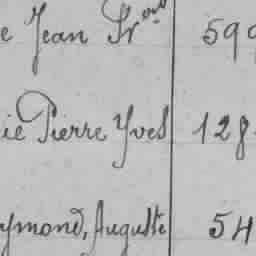 e Jean Fr.ois 599
ie Pierre Yves 128
ymond, Auguste 54